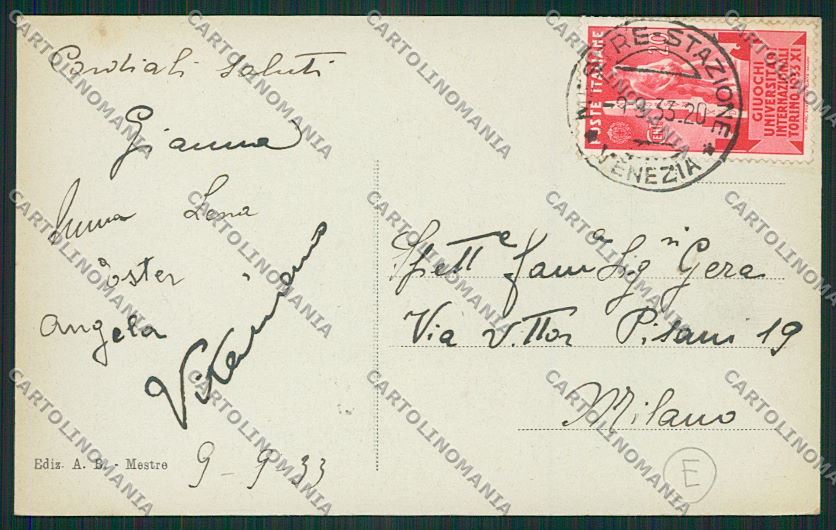 Cordiali saluti
Gianna
Emma Lena
ester "
Angela
9-9 33
Ediz. A. B. - Mestre
POSTE ITALIANE
20
GIUOCHI
UNIVERSITARI
INTERNAZIONALI
TORINO 1933 XI
MESTRE STAZIONE
-9.9.33.20
* VENEZIA *
Spett e Fam a Sig ri Gera
Via Vittor Pisani 19
Milano
E
CARTOLINOMANIA